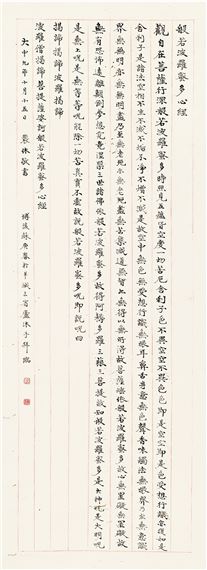 般若波羅蜜多心經
觀自在菩薩行深般若波羅蜜多時照見五蘊皆空度一切苦厄舍利子色不異空空不異色色即是空空即是色受想行識亦復如是
舍利子是諸法空相不生不滅不垢不淨不增不減是故空中無色無受想行識無眼耳鼻舌身意無色聲香味觸法無眼界乃至無意識
界無無明亦無無明盡乃至無老死亦無老死盡無苦集滅道無智亦無得以無所得故菩提薩埵依般若波羅蜜多故心無罣礙無罣礙故
無有恐怖遠離顛倒夢想究竟涅槃三世諸佛依般若波羅蜜多故得阿耨多羅三藐三菩提故知般若波羅蜜多是大神咒是大明咒
是無上咒是無等等咒能除一切苦真實不虛故說般若波羅蜜多咒即說咒曰
揭諦揭諦波羅揭諦
波羅僧揭諦菩提薩婆訶般若波羅蜜多心經
大中九年十月十五日 裴休敬書